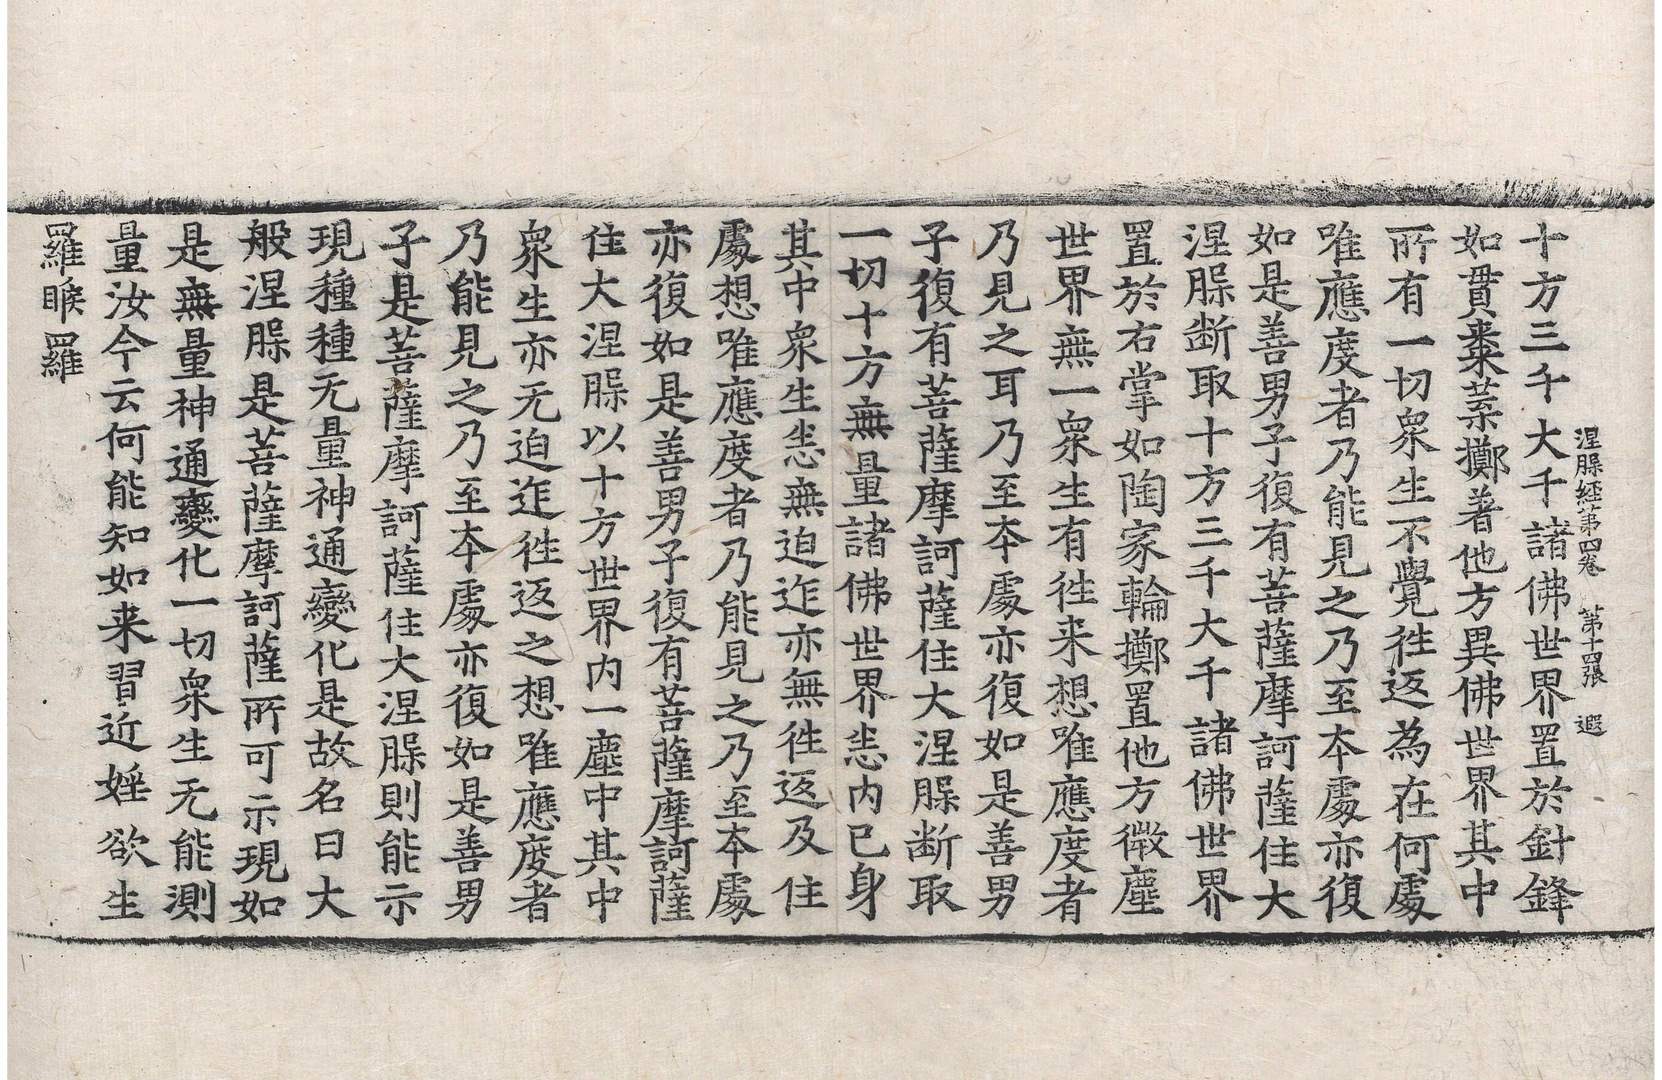 涅槃經第四卷　第十四張　遐
十方三千大千諸佛世界置於針鋒
如貫棗葉擲著他方異佛世界其中
所有一切衆生不覺徃返為在何處
唯應度者乃能見之乃至本處亦復
如是善男子復有菩薩摩訶薩住大
涅槃断取十方三千大千諸佛世界
置於右掌如陶家輪擲置他方微塵
世界無一衆生有徃来想唯應度者
乃見之耳乃至本處亦復如是善男
子復有菩薩摩訶薩住大涅槃断取
一切十方無量諸佛世界悉内己身
其中衆生悉無迫迮亦無徃返及住
處想唯應度者乃能見之乃至本處
亦復如是善男子復有菩薩摩訶薩
住大涅槃以十方世界内一塵中其中
衆生亦无迫迮徃返之想唯應度者
乃能見之乃至本處亦復如是善男
子是菩薩摩訶薩住大涅槃則能示
現種種无量神通變化是故名曰大
般涅槃是菩薩摩訶薩所可示現如
是無量神通變化一切衆生无能測
量汝今云何能知如来習近婬欲生
羅睺羅